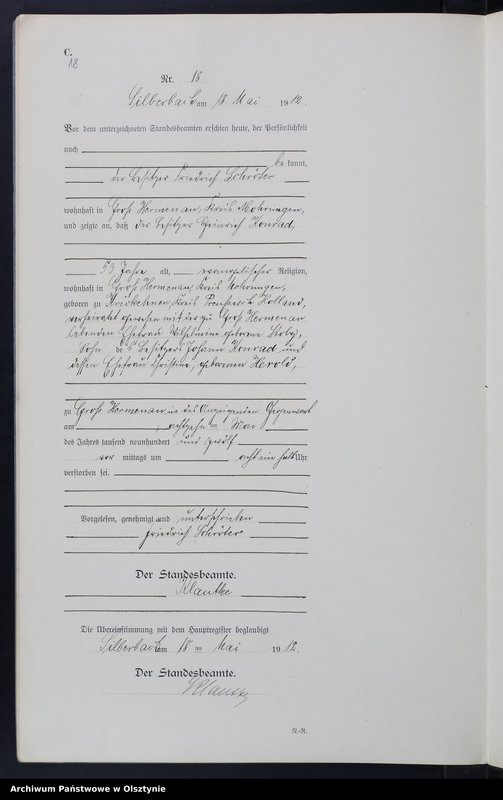 C.
18
Nr. 18
Silberbach am 18 Mai 1912.
Vor dem unterzeichneten Standesbeamten erschien heute, der Persönlichkeit
nach
be kannt,
der Besitzer Friedrich Schröter
wohnhaft in Groß Hermenau, Kreis Mohrungen,
und zeigte an, daß der Besitzer Heinrich Konrad,
53 Jahre alt, evangelischer Religion,
wohnhaft in Groß Hermenau, Kreis Mohrungen,
geboren zu Kreis Preußisch Holland,
verheiratet gewesen mit der zu Groß Hermenau
lebenden Ehefrau Wilhelmine geborene
Sohn des Besitzers Johann Konrad und
dessen Ehefrau Christine, geborenen Herold,
zu Groß Hermenau in des Anzeigenden Gegenwart
am achtzehnten Mai
des Jahres tausend neunhundert und zwölf
vor mittags um acht ein halb Uhr
verstorben sei.
Vorgelesen, genehmigt und unterschrieben
Friedrich Schröter
Der Standesbeamte.
Klautke
Die Übereinstimmung mit dem Hauptregister beglaubigt
Silberbach am 18 ten Mai 1912.
Der Standesbeamte.
Klautke
N.-R.
Archiwum Państwowe w Olsztynie